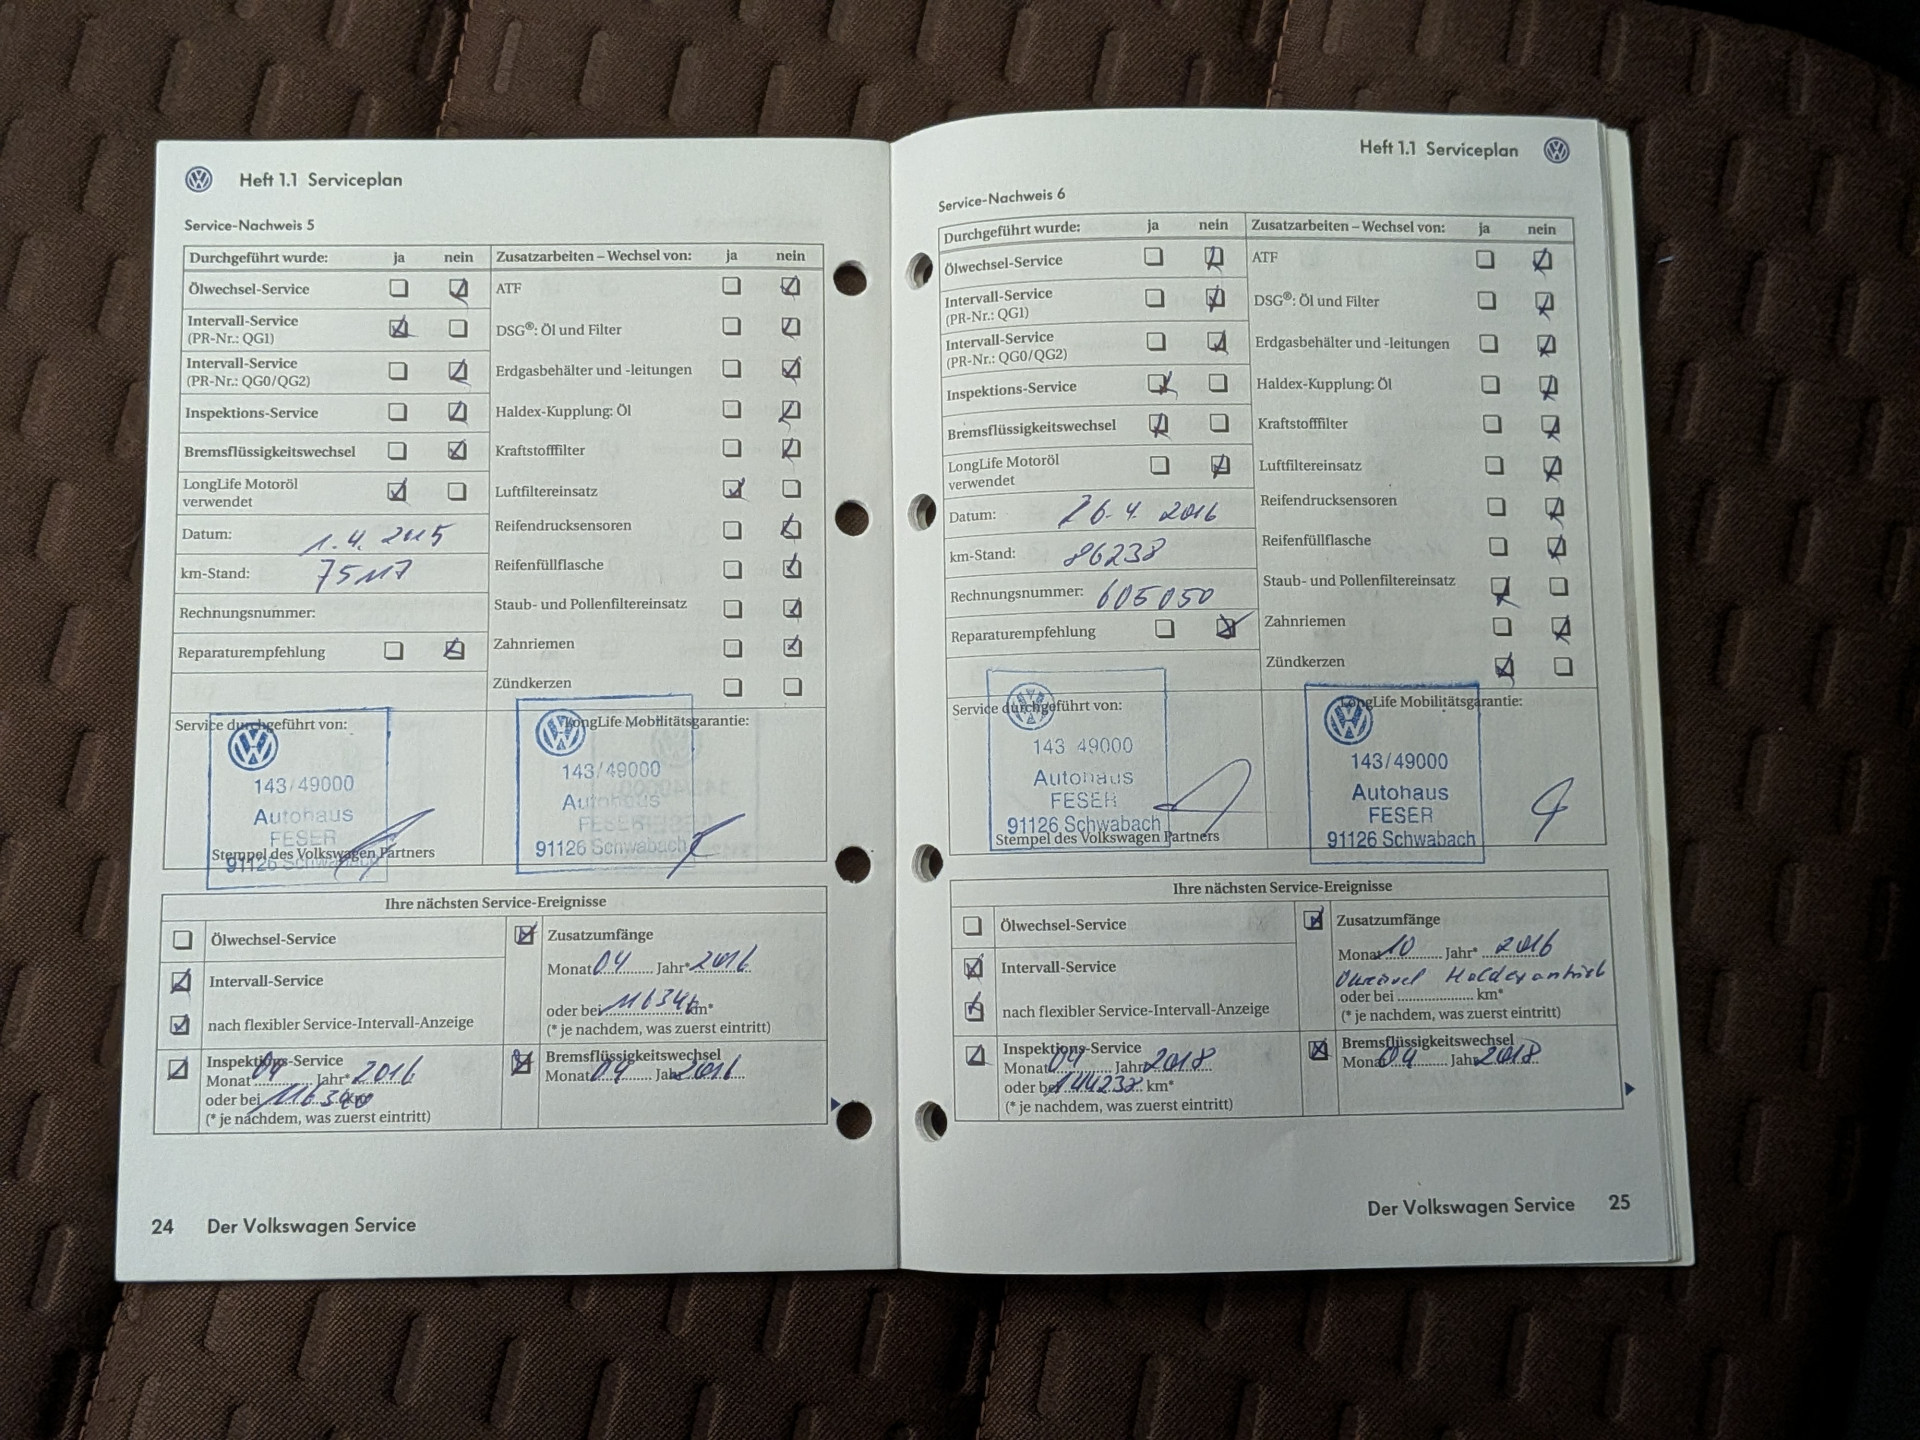 Heft 1.1 Serviceplan
Service-Nachweis 5
Durchgeführt wurde: ja nein Zusatzarbeiten – Wechsel von: ja nein
Ölwechsel-Service ATF
Intervall-Service
(PR-Nr.: QG1)
DSG®: Öl und Filter
Intervall-Service
(PR-Nr.: QG0/QG2)
Erdgasbehälter und -leitungen
Inspektions-Service Haldex-Kupplung: Öl
Bremsflüssigkeitswechsel Kraftstofffilter
LongLife Motoröl
verwendet
Luftfiltereinsatz
Datum: 1.4. 2015 Reifendrucksensoren
km-Stand: 75117 Reifenfüllflasche
Rechnungsnummer: Staub- und Pollenfiltereinsatz
Reparaturempfehlung Zahnriemen
Zündkerzen
Service durchgeführt von: LongLife Mobilitätsgarantie:
143/49000 143/49000
Autohaus Autohaus
FESER FESER
91126 Schwabach 91126 Schwabach
Stempel des Volkswagen Partners
Ihre nächsten Service-Ereignisse
Ölwechsel-Service Zusatzumfänge
Monat 04 Jahr* 2016
Intervall-Service
oder bei 116346 km*
nach flexibler Service-Intervall-Anzeige (* je nachdem, was zuerst eintritt)
Inspektions-Service Bremsflüssigkeitswechsel
Monat 04 Jahr* 2016 Monat 04 Jahr 2016
oder bei km*
(* je nachdem, was zuerst eintritt)
24 Der Volkswagen Service
Heft 1.1 Serviceplan
Service-Nachweis 6
Durchgeführt wurde: ja nein Zusatzarbeiten – Wechsel von: ja nein
Ölwechsel-Service ATF
Intervall-Service
(PR-Nr.: QG1)
DSG®: Öl und Filter
Intervall-Service
(PR-Nr.: QG0/QG2)
Erdgasbehälter und -leitungen
Inspektions-Service Haldex-Kupplung: Öl
Bremsflüssigkeitswechsel Kraftstofffilter
LongLife Motoröl
verwendet
Luftfiltereinsatz
Datum: 26.4. 2016 Reifendrucksensoren
km-Stand: 86238 Reifenfüllflasche
Rechnungsnummer: 605050 Staub- und Pollenfiltereinsatz
Reparaturempfehlung Zahnriemen
Zündkerzen
Service durchgeführt von: LongLife Mobilitätsgarantie:
143 49000 143/49000
Autohaus Autohaus
FESER FESER
91126 Schwabach 91126 Schwabach
Stempel des Volkswagen Partners
Ihre nächsten Service-Ereignisse
Ölwechsel-Service Zusatzumfänge
Monat 10 Jahr* 2016
Intervall-Service
oder bei km*
nach flexibler Service-Intervall-Anzeige (* je nachdem, was zuerst eintritt)
Inspektions-Service Bremsflüssigkeitswechsel
Monat 04 Jahr 2018 Monat 04 Jahr 2018
oder bei 144238 km*
(* je nachdem, was zuerst eintritt)
Der Volkswagen Service 25